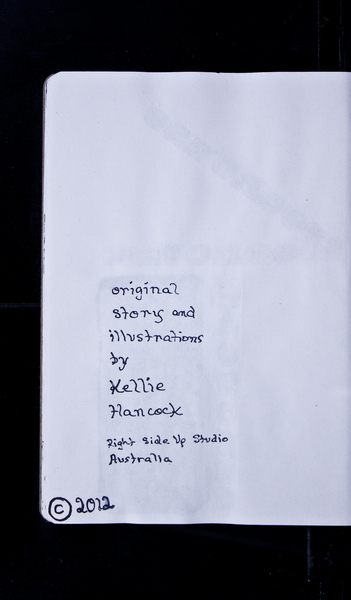 original
story and
illustrations
by
Kellie
Hancock
Right Side Up Studio
Australia
© 2012